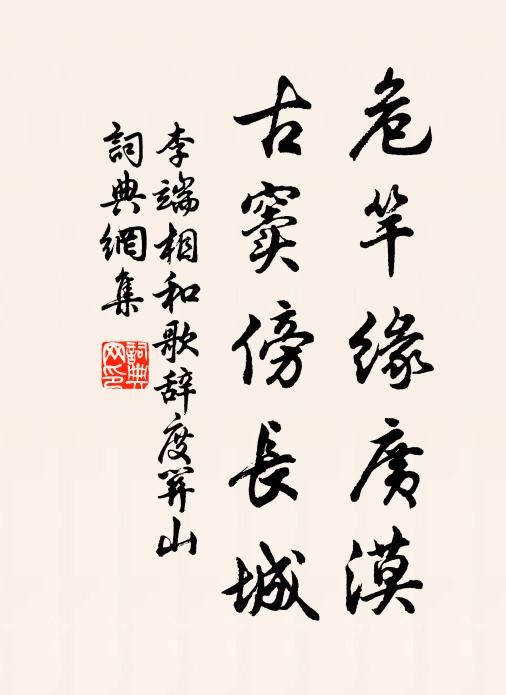 危竿緣廣漠
古竇傍長城
李端相和歌辞度關山
詞典網集
詞典網印